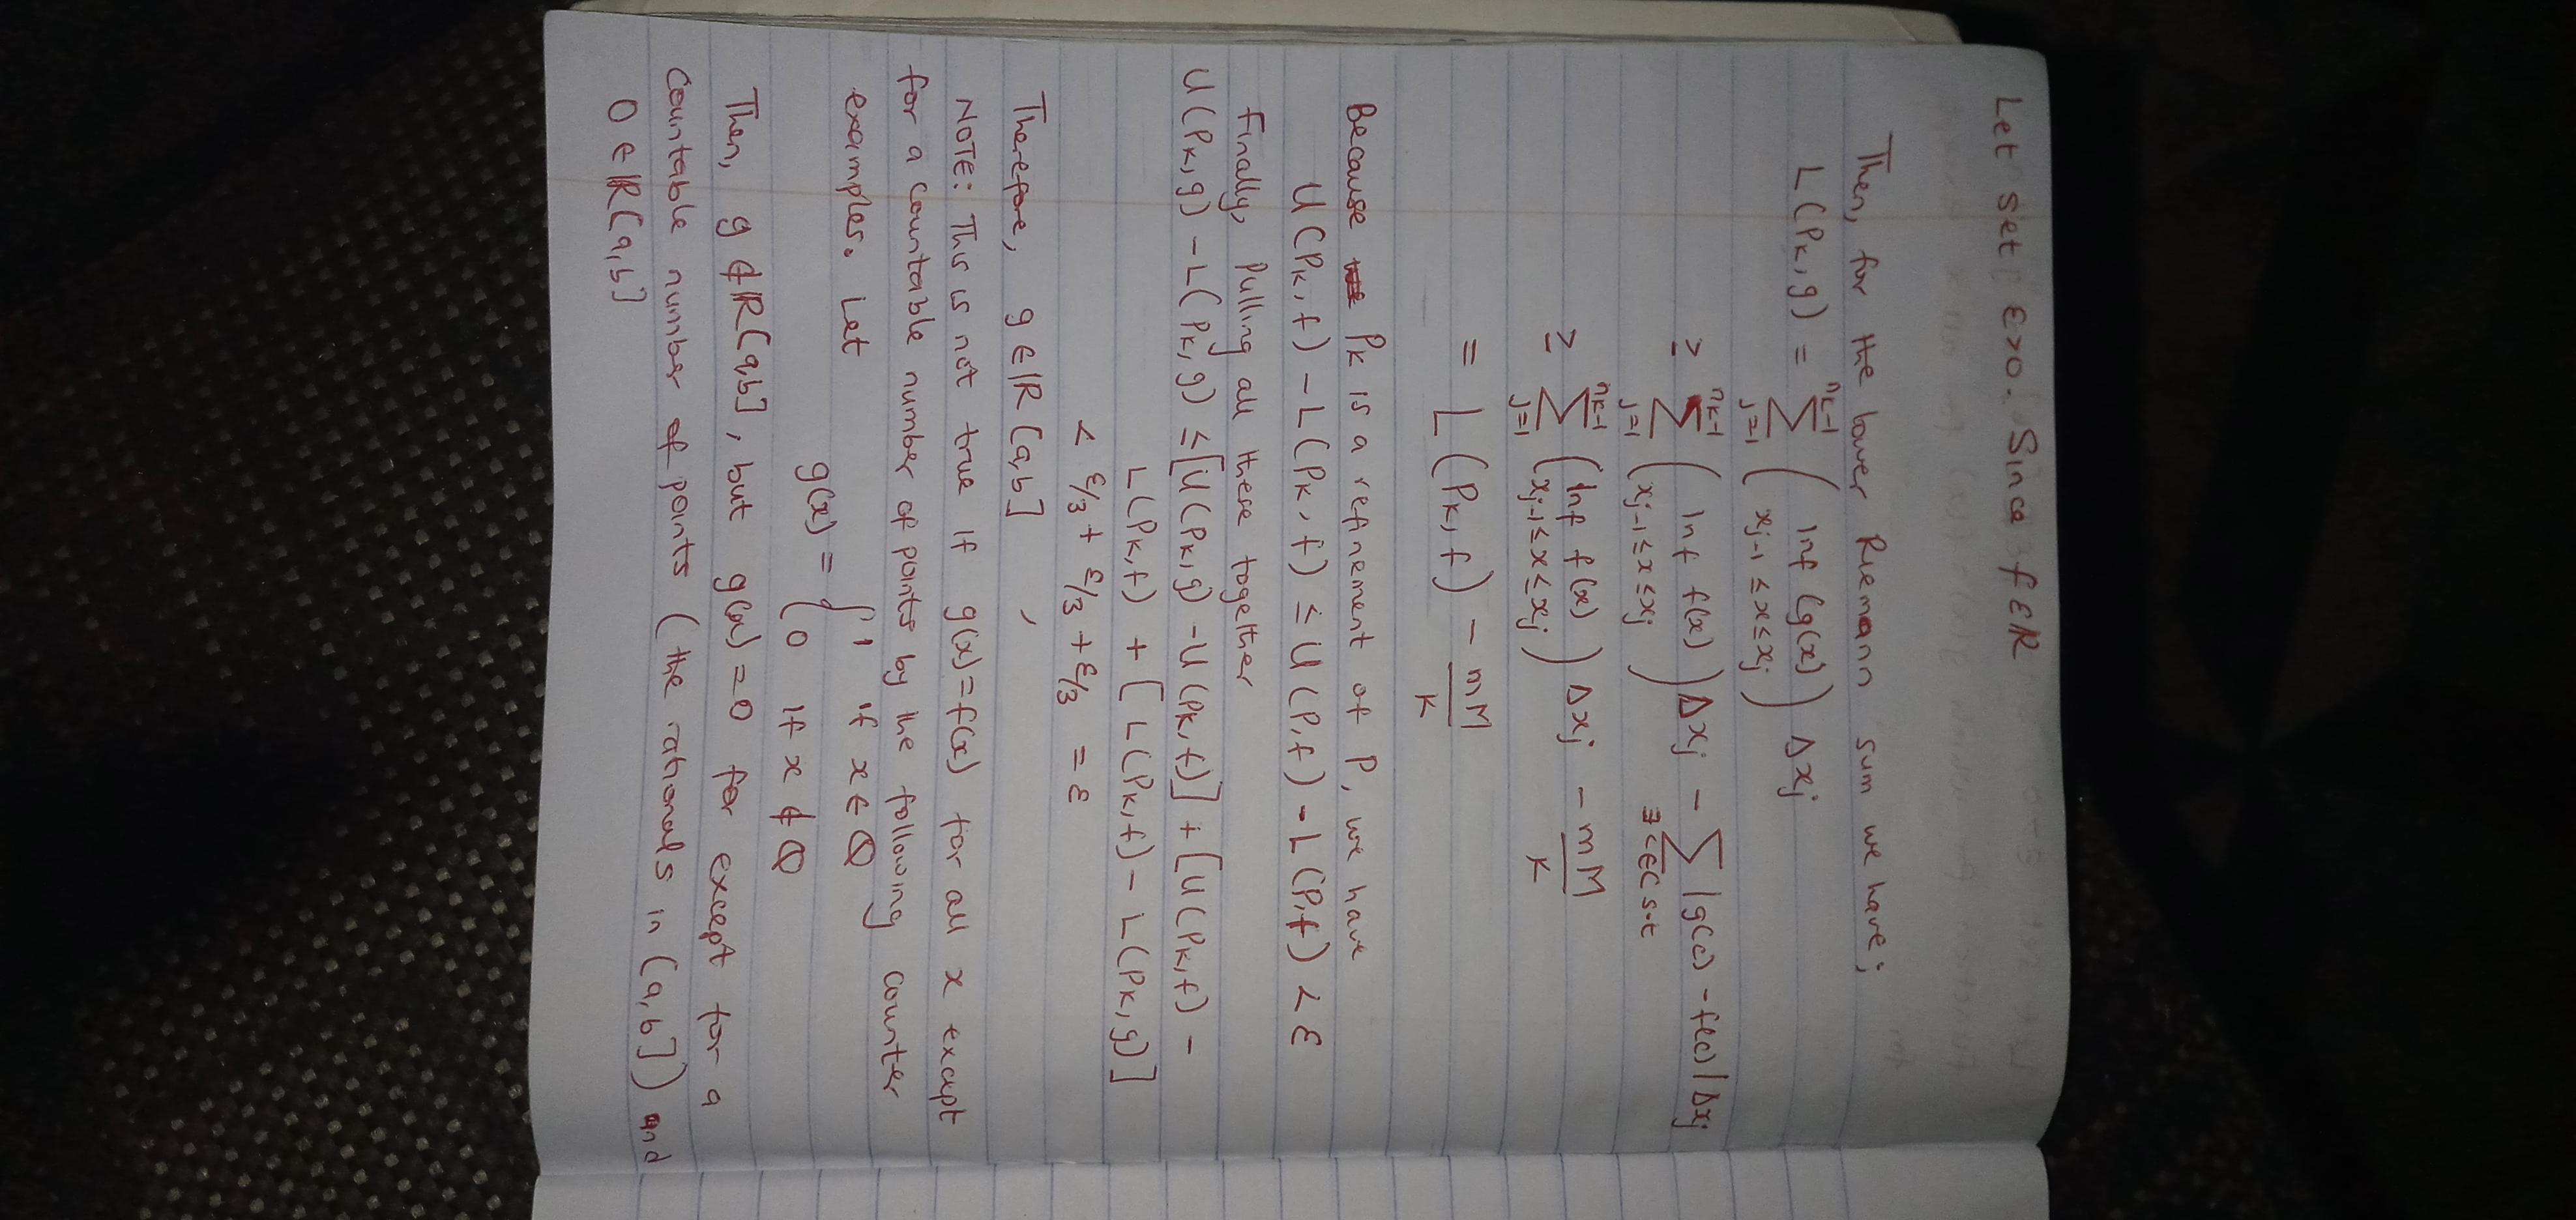 Let set ε>0. Since f∈R
Then, for the lower Riemann sum we have;
L(Pk, g) = Σ_{j=1}^{nk-1} ( Inf (g(x)) xj-1 ≤ x ≤ xj ) Δxj
≥ Σ_{j=1}^{nk-1} ( Inf f(x) xj-1 ≤ x ≤ xj ) Δxj - Σ_{∃ c∈C s.t} |g(c) - f(c)| Δxj
≥ Σ_{j=1}^{nk-1} ( Inf f(x) xj-1 ≤ x ≤ xj ) Δxj - mM/K
= L(Pk, f) - mM/K
Because Pk is a refinement of P, we have
U(Pk, f) - L(Pk, f) ≤ U(P, f) - L(P, f) < ε
Finally, Pulling all these together
U(Pk, g) - L(Pk, g) ≤ [U(Pk, g) - U(Pk, f)] + [U(Pk, f) -
L(Pk, f) + [L(Pk, f) - L(Pk, g)]
< ε/3 + ε/3 + ε/3 = ε
Therefore, g∈R[a,b]
NOTE: This is not true if g(x) = f(x) for all x except
for a countable number of points by the following counter
examples. Let
g(x) = { 1, if x ∈ Q
0 if x ∉ Q
Then, g ∉ R[a,b], but g(x) = 0 for except for a
countable number of points (the rationals in (a,b]) and
0 ∈ R[a,b]